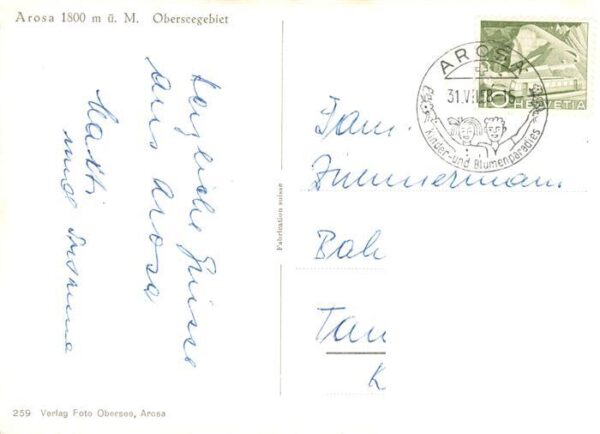 Arosa 1800 m ü. M. Oberseegebiet
Herzliche Grüsse
aus Arosa
Makti
und
Fabrication suisse
AROSA
31.V
Kinder- und Blumenparadies
10
HELVETIA
Fam.
Zimmermann
Bah
Tau
K
259 Verlag Foto Obersee, Arosa